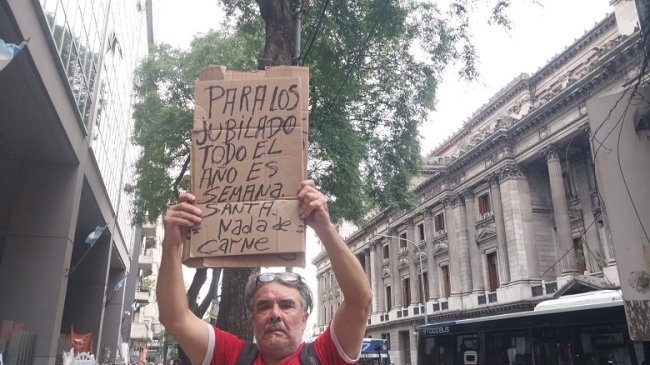 PARA LOS
JUBILADO
TODO EL
AÑO ES
SEMANA
SANTA.
= Nada de =
Carne